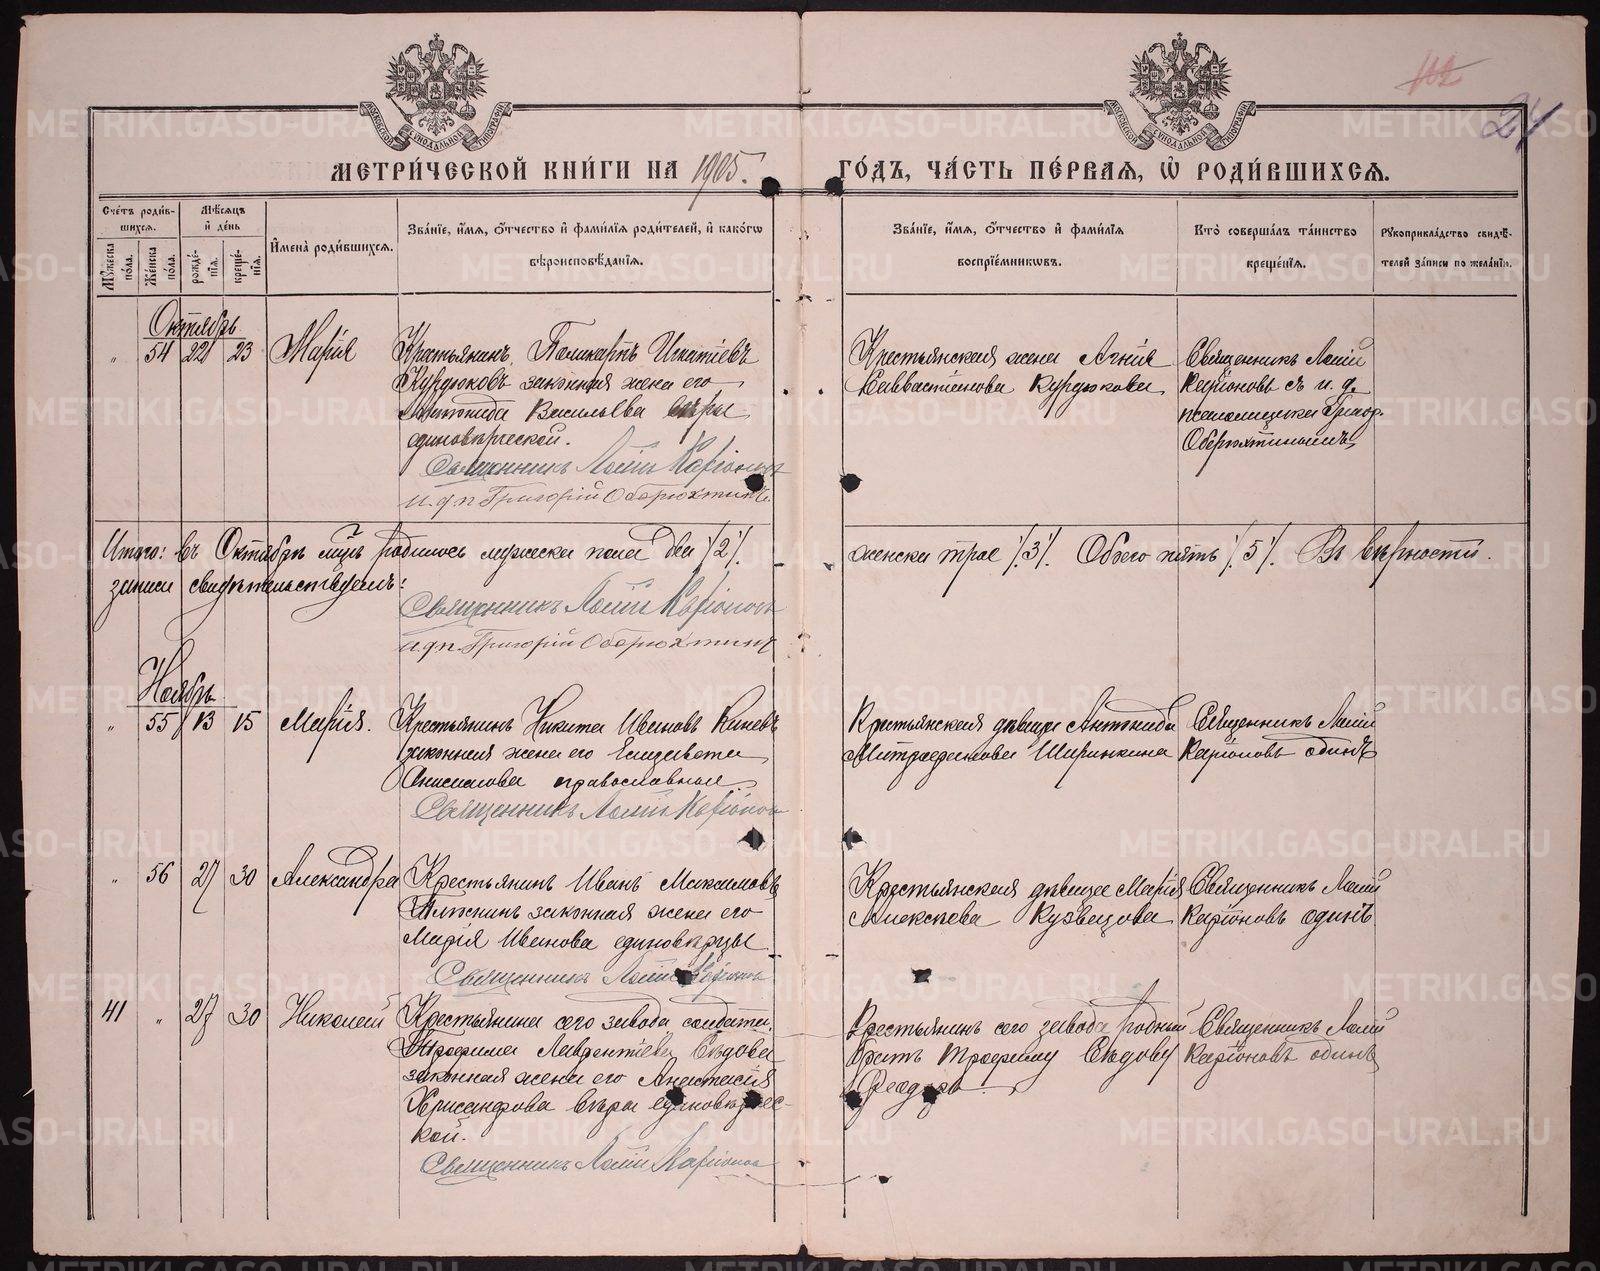 МЕТРИ́ЧЕСКОЙ КНИ́ГИ НА 1905. ГО́ДЪ, ЧА́СТЬ ПЕ́РВАЯ, Ѡ РОДИ́ВШИХСЯ.
24
Сче́тъ роди́в-
шихся.
Му́жеска по́ла.
Же́нска по́ла.
Мѣ́сяцъ
и де́нь
рожде́-
нїя.
креще́-
нїя.
И́мена роди́вшихся.
Зва́нїе, и́мя, о́тчество и фами́лїя роди́телей, и како́гѡ
вѣроисповѣ́данїя.
Зва́нїе, и́мя, о́тчество и фами́лїя
воспрїе́мниковъ.
Кто̀ соверша́лъ та́инство
креще́нїя.
Рукоприкла́дство свидѣ́-
телей за́писи по жела́нїю.
Октябрь
" 54 22 23 Марія
Крестьянинъ Поликарпъ Игнатіевъ
Курдюковъ законная жена его
Васильева вѣры
единовѣрческой.
Священникъ Каріоновъ
и.д.п. Григорій Оборюхтинъ
Крестьянская жена Агнія
Савватіанова Курдюкова
Священникъ
Каріоновъ съ и. д.
псаломщика Григор.
Оборюхтинымъ
Итого: въ Октябрѣ мцѣ родилось мужеска пола два /2/.
женска трое /3/. Обоего пять /5/. Въ вѣрности
записи свидѣтельствуемъ:
Священникъ Каріоновъ
и.д.п. Григорій Оборюхтинъ
Ноябрь
" 55 13 15 Марія.
Крестьянинъ Никита Ивановъ
законная жена его Елизавета
Анисимова православныя
Священникъ Каріоновъ
Крестьянская дѣвица Антонида
Митрофанова Ширинкина
Священникъ
Каріоновъ одинъ
" 56 27 30 Александра
Крестьянинъ Иванъ Максимовъ
законная жена его
Марія Иванова единовѣрцы
Священникъ Каріоновъ
Крестьянская дѣвица Марія
Алексѣева Кузнецова
Священникъ
Каріоновъ одинъ
41 " 27 30 Николай
Крестьянина сего завода солдата
Трофима Лаврентіева Сѣдова
законная жена его Анастасія
Хрисанфова вѣры единовѣрчес-
кой.
Священникъ Каріоновъ
Крестьянинъ сего завода родный
братъ Трофиму Сѣдову
Феодоръ
Священникъ
Каріоновъ одинъ
METRIKI.GASO-URAL.RU